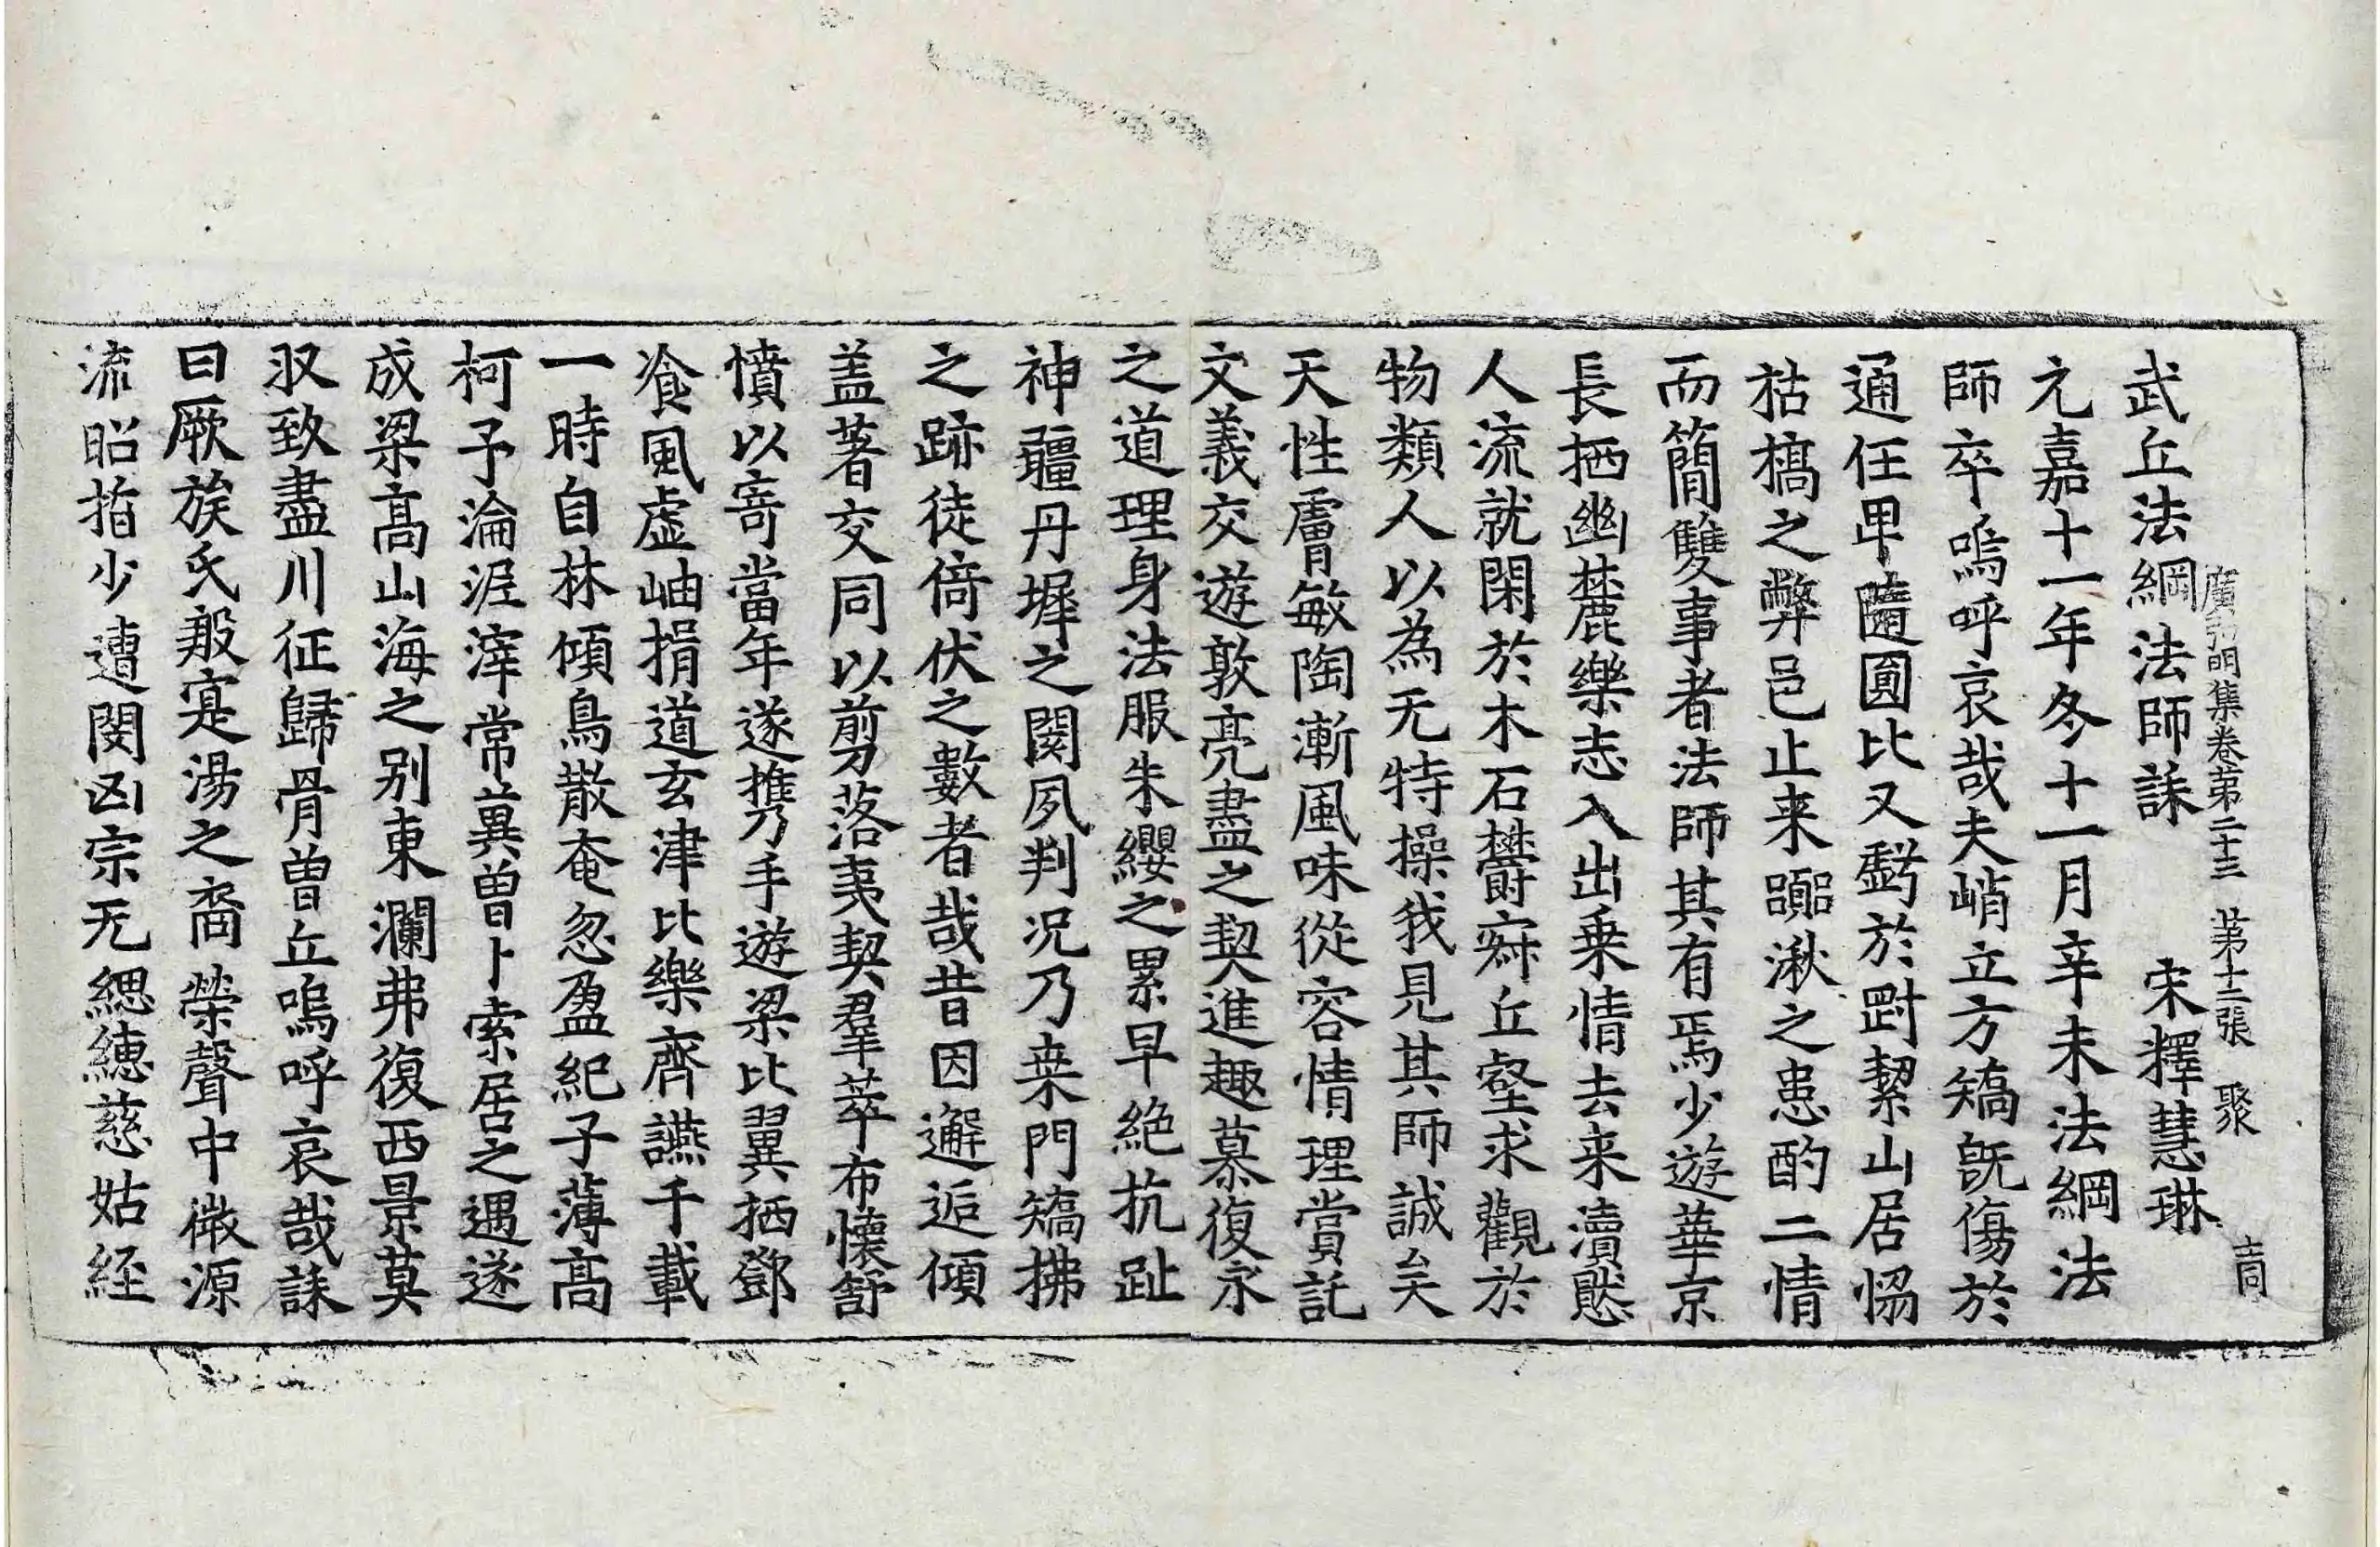 廣弘明集卷第二十三 第十二張 聚
武丘法綱法師誄 宋釋慧琳
元嘉十一年冬十一月辛未法綱法
師卒嗚呼哀哉夫峭立方矯旣傷於
通任卑隨圓比又虧於剛絜山居協
枯槁之弊邑止来囂湫之患酌二情
而簡雙事者法師其有焉少遊華京
長栖幽麓樂志入出乗情去来瀆愍
人流就閑於木石欝寂丘壑求觀於
物類人以為无特操我見其師誠矣
天性膚敏陶漸風味從容情理賞託
文義交遊敦亮盡之契進趣慕復永
之道理身法服朱纓之累早絶抗趾
神疆丹墀之闋夙判况乃桒門矯拂
之跡徒倚伏之數者哉昔因邂逅傾
盖著交同以剪落夷契羣萃布懷舒
憤以寄當年遂携手遊梁比翼栖鄧
飡風虚岫揖道玄津比樂齊讌千載
一時自林傾鳥散奄忽盈紀子薄高
柯予淪泥滓常冀曽卜索居之遇遂
成梁高山海之别東瀾弗復西景莫
収致盡川征歸骨曽丘嗚呼哀哉誄
曰厥族氏殷寔湯之裔榮聲中微源
流昭指少遭閔凶宗无緦緦慈姑經